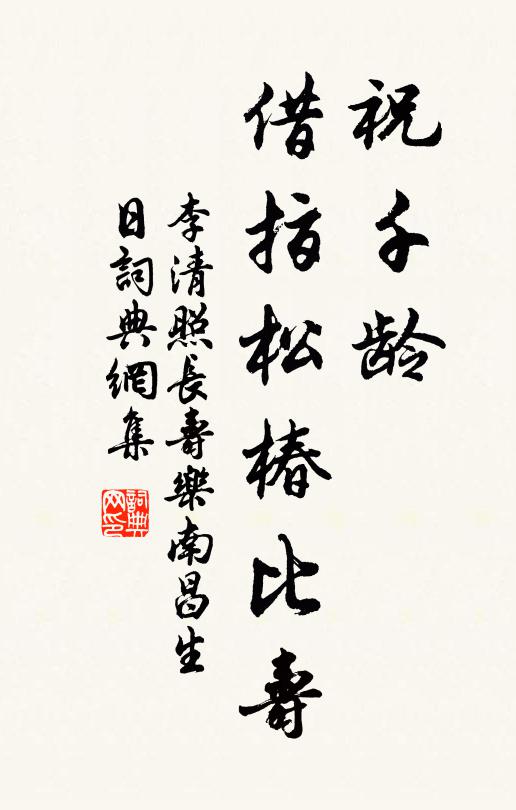 祝千龄
借指松椿比壽
李清照長壽樂南昌生
日詞典網集
詞典
网印